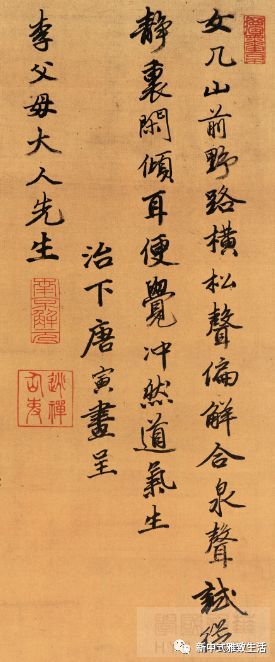 女几山前野路橫松聲偏解合泉聲試從
靜裏閑傾耳便覺冲然道氣生
治下唐寅畫呈
李父母大人先生
南京解元
逃禪仙吏
新中式雅致生活